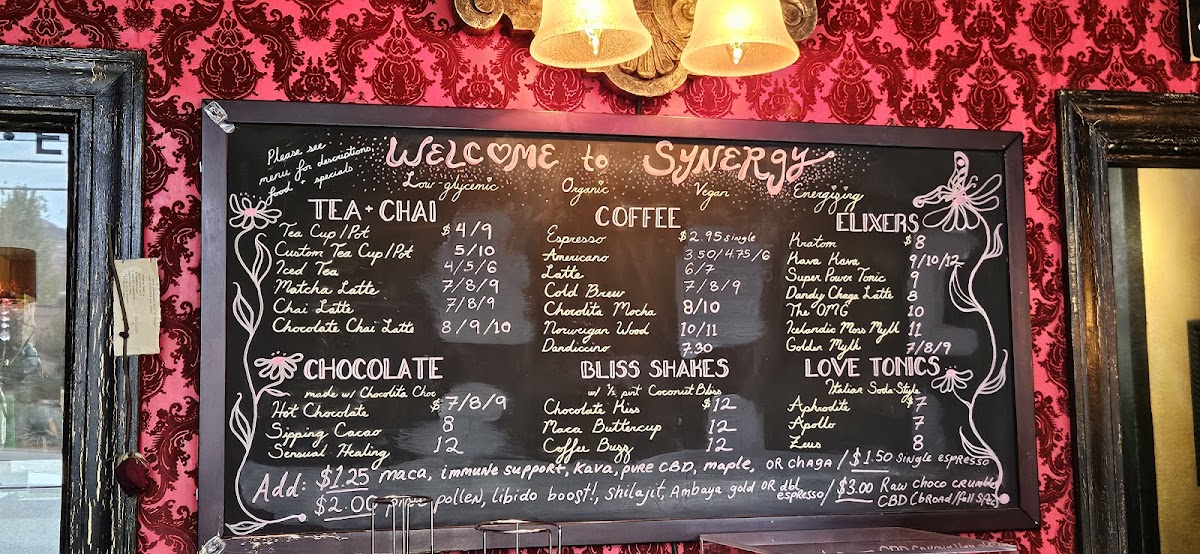 Please see
menu for descriptions,
food + specials
WELCOME to SYNERGY
Low glycenic Organic Vegan Energizing
TEA + CHAI
Tea Cup/Pot $4/9
Custom Tea Cup/Pot 5/10
Iced Tea 4/5/6
Matcha Latte 7/8/9
Chai Latte 7/8/9
Chocolate Chai Latte 8/9/10
COFFEE
Espresso $2.95 single
Americano 3.50/4.75/6
Latte 6/7
Cold Brew 7/8/9
Chocolita Mocha 8/10
Norweigan Wood 10/11
Dandiccino 7.30
ELIXERS
Kratom $8
Kava Kava 9/10/12
Super Power Tonic 9
Dandy Chaga Latte 8
The OMG 10
Icelandic Moss Mylk 11
Golden Mylk 7/8/9
CHOCOLATE
made w/ Chocolita Choc
Hot Chocolate $7/8/9
Sipping Cacao 8
Sensual Healing 12
BLISS SHAKES
w/ ½ pint Coconut Bliss
Chocolate Kiss $12
Maca Buttercup 12
Coffee Buzz 12
LOVE TONICS
Italian Soda Style
Aphrodite $7
Apollo 7
Zeus 8
Add: $1.25 maca, immune support, kava, pure CBD, maple, OR chaga / $1.50 single espresso
$2.00 pine pollen, libido boost!, shilajit, Ambaya gold OR dbl espresso / $3.00 Raw choco crumble
CBD (broad/full